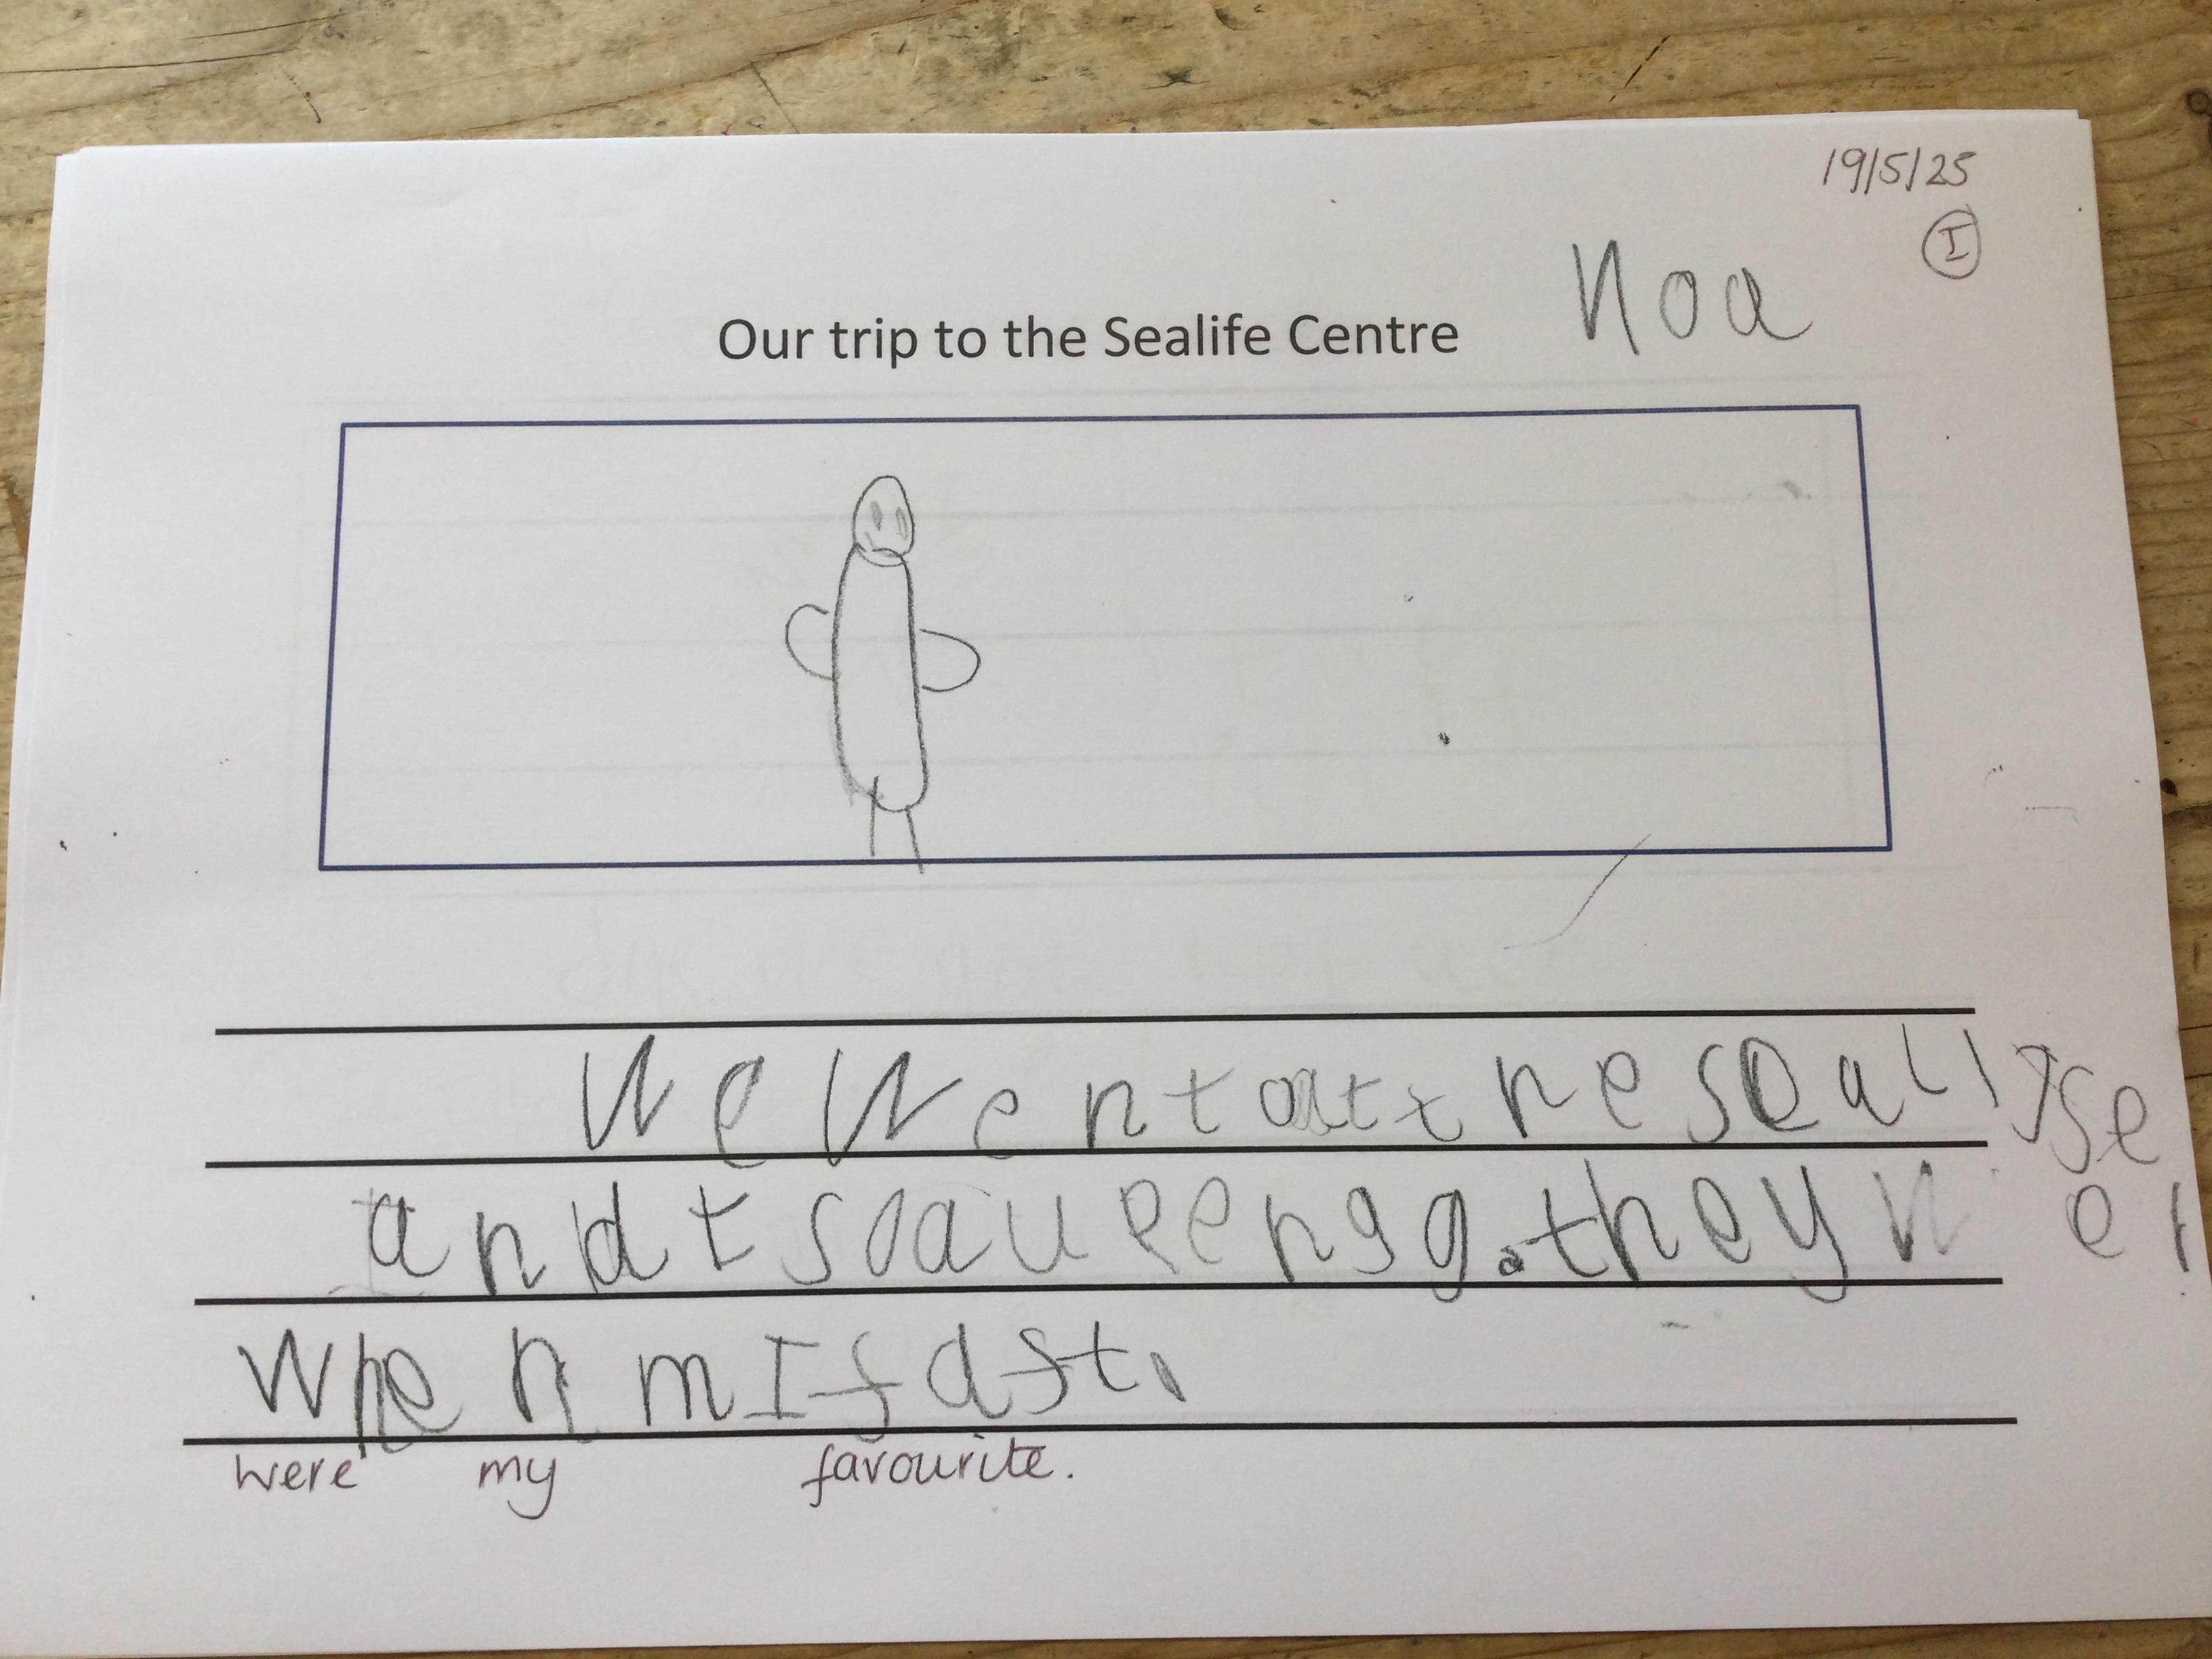 19/5/25
I
Noa
Our trip to the Sealife Centre
We went at the sealifse
and t soau peengg. they
when mI fast.
were my favourite.